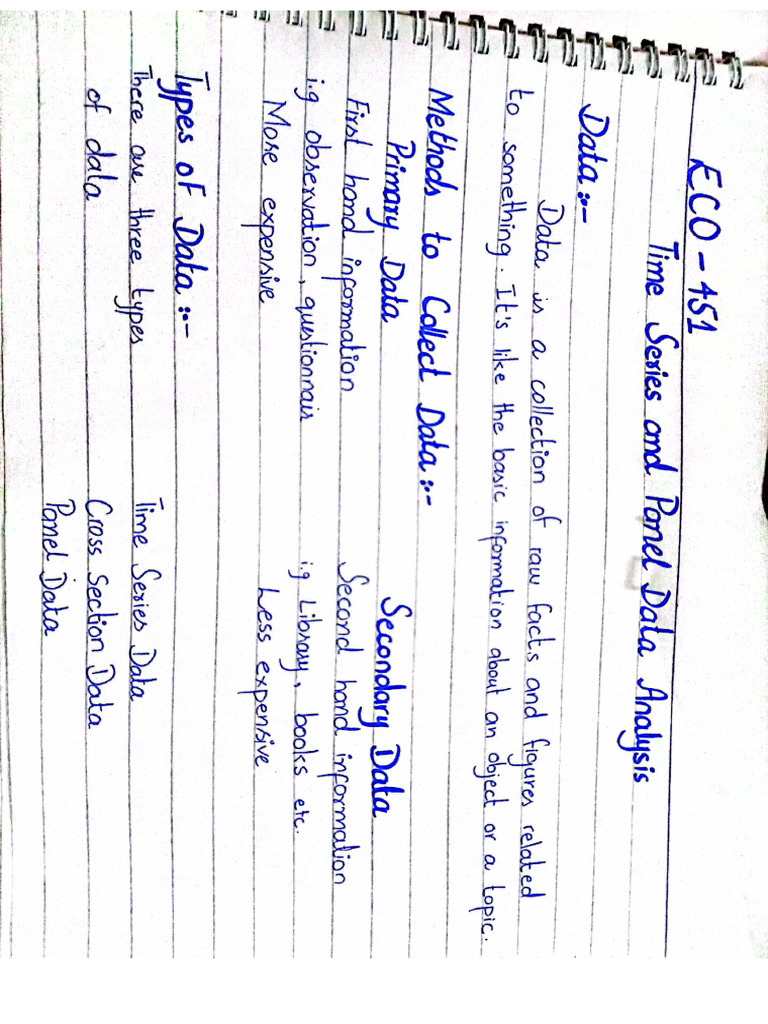 ECO-451
Time Series and Panel Data Analysis
Data:-
Data is a collection of raw facts and figures related
to something. It's like the basic information about an object or a topic.
Methods to Collect Data:-
Primary Data Secondary Data
First hand information Second hand information
i.g observation, questionnair i.g Library, books etc.
More expensive Less expensive
Types of Data:-
There are three types Time Series Data
of data Cross Section Data
Panel Data